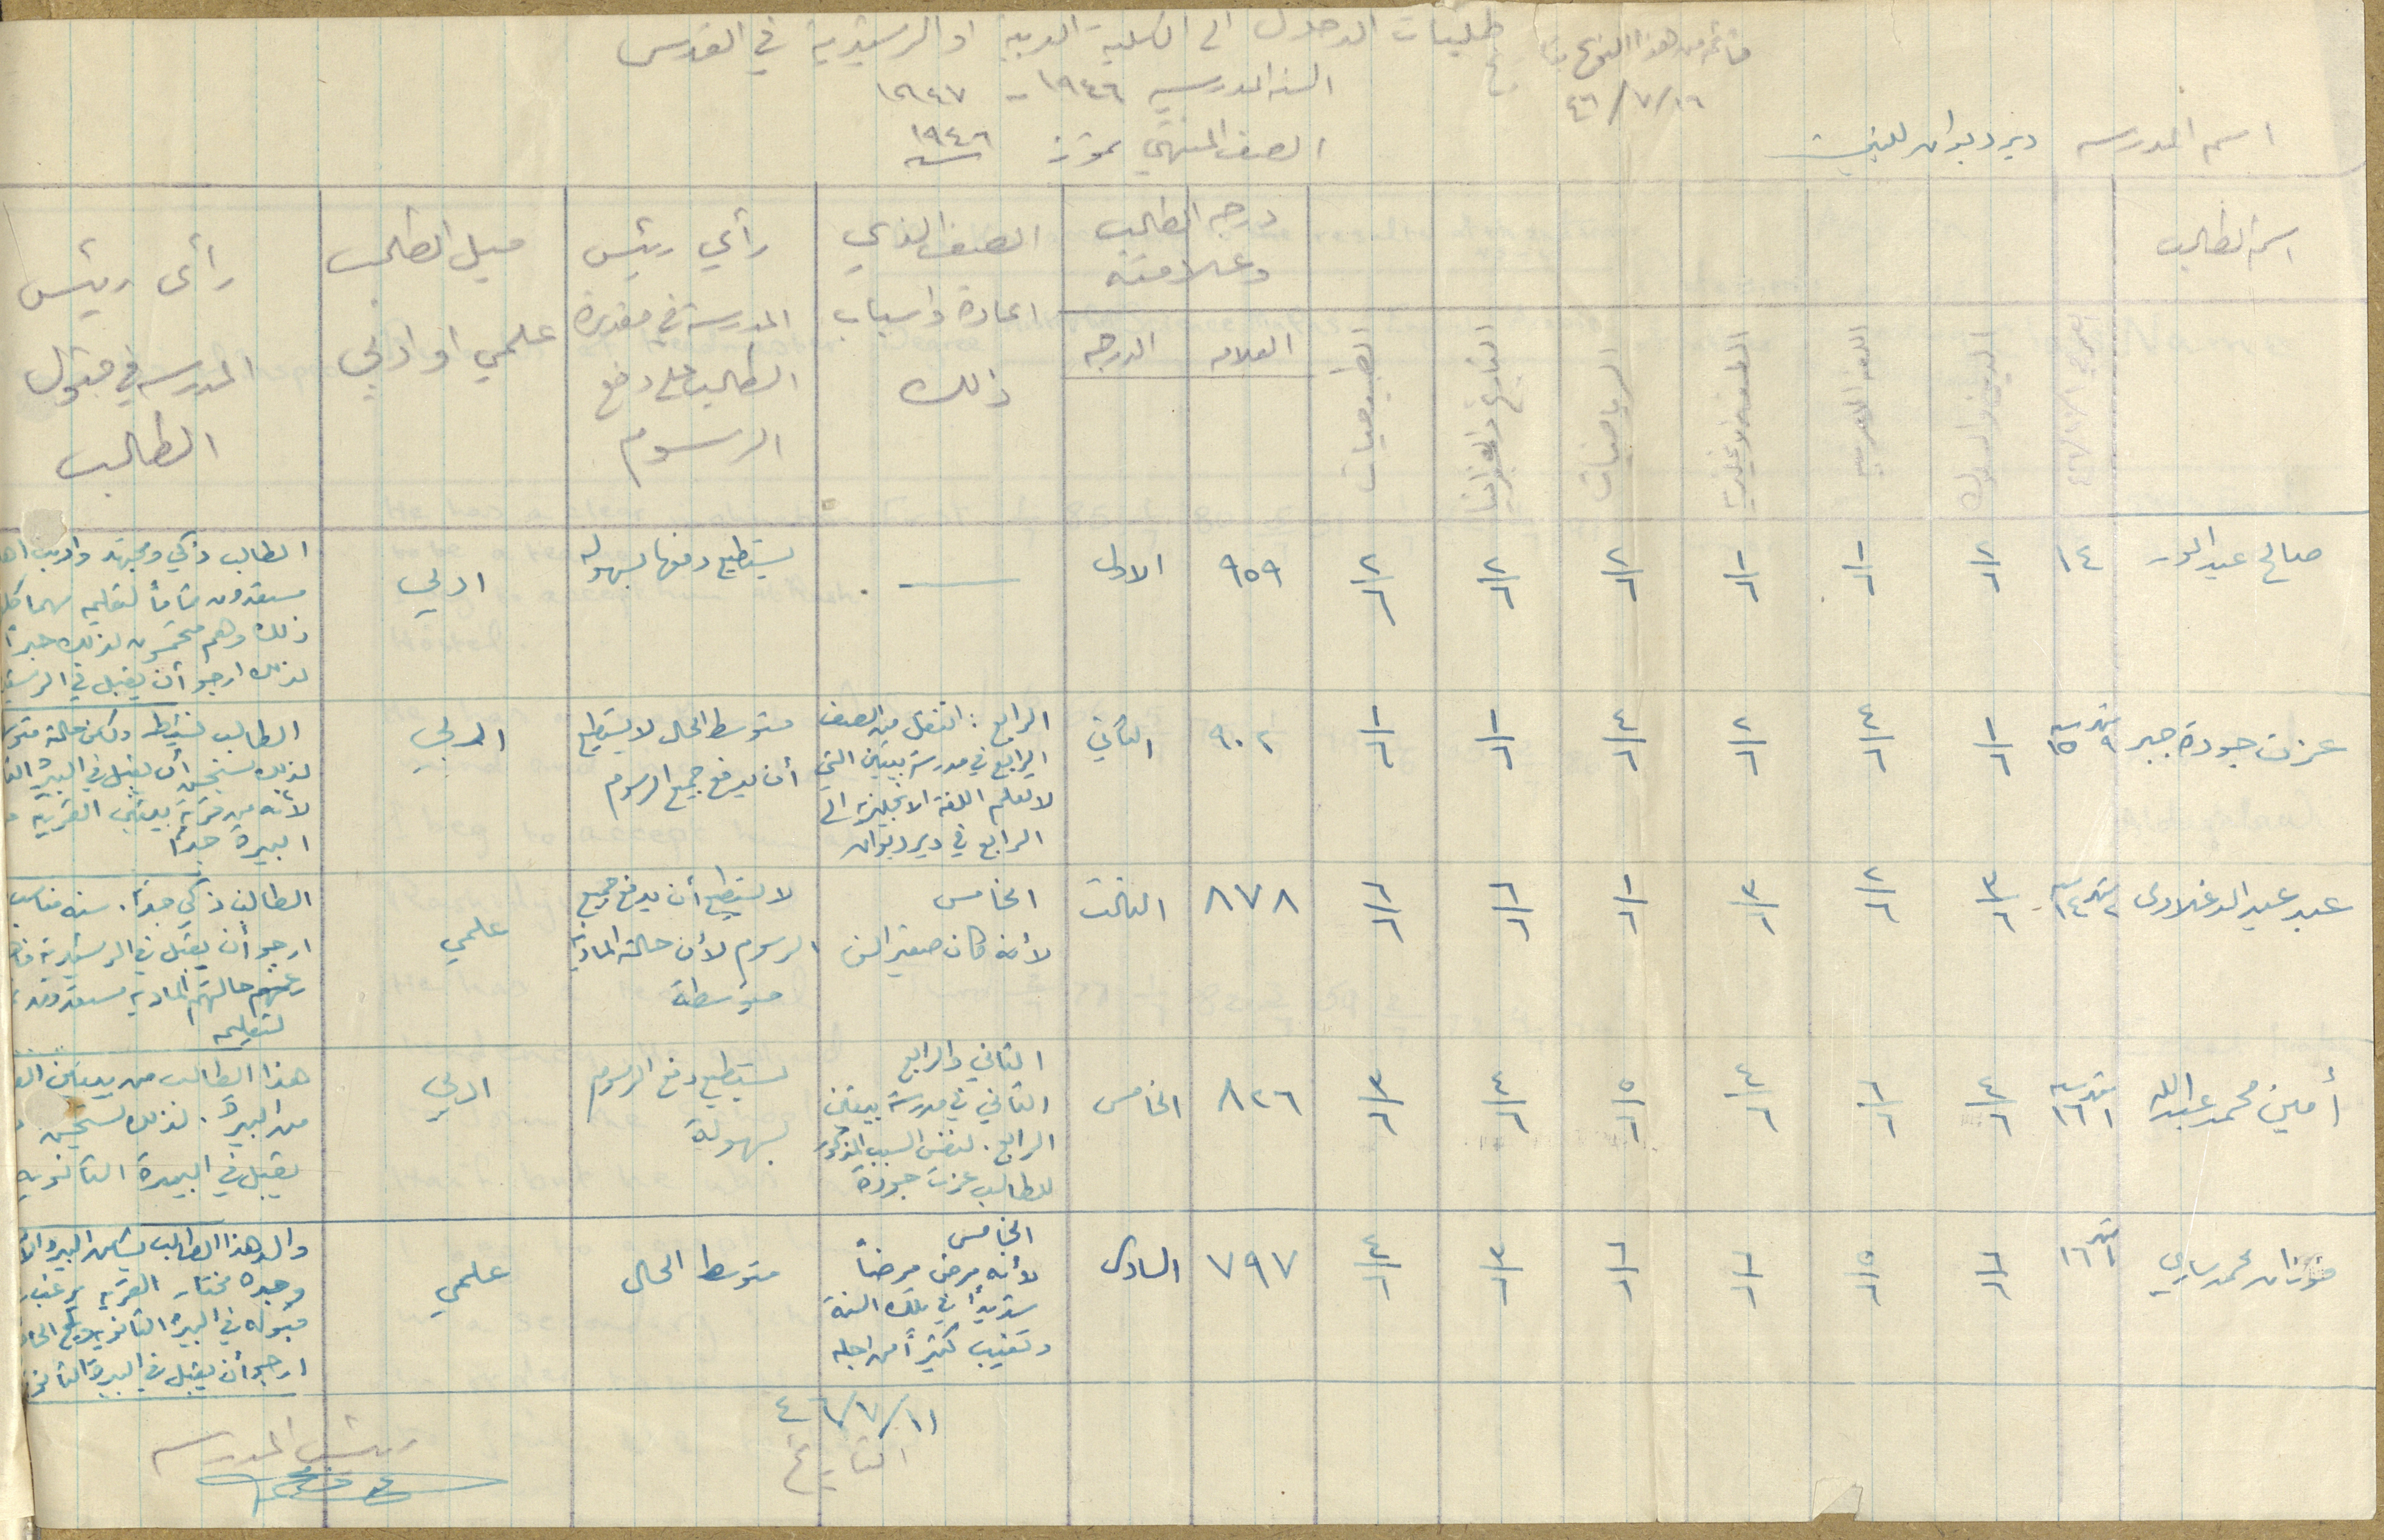 طلبات الدخول الى الكلية العربية او الرشيدية في القدس
السنة المدرسية ١٩٤٦ - ١٩٤٧
الصف المنتهي تموز سنة ١٩٤٦
قائمة من هذا النوع
١٦/٧/٤٦
اسم المدرسة دير ديوان للبنين
اسم الطالب
العمر في ١/٨/٤٦
الدين والسلوك
اللغة العربية
اللغة الانجليزية
الرياضيات
التاريخ والجغرافيا
درجة الطالب وعلامته
العلامة
الدرجة
الصف الذي
اعاده واسباب
ذلك
رأي رئيس
المدرسة في مقدرة
الطالب على دفع
الرسوم
ميل الطالب
علمي او ادبي
رأي رئيس
المدرسة في قبول
الطالب
صالح عبد ١٤ ٢/٦ ١/٦ ١/٦ ٢/٦ ٢/٦ ٢/٦ ٩٥٩ الاول —
يستطيع دفعها بسهولة
ادبي
الطالب ذكي ومجتهد واديب
مستعدون تماماً لتعليمه مهما
ذلك وهم متحمسون لذلك جداً
لذلك ارجو أن يقبل في
عزت جودة جبر ٩ شهر ١٥ سنة ١/٦ ٤/٦ ٢/٦ ٤/٦ ١/٦ ١/٦ ٩٠٢ الثاني
الرابع : انتقل من الصف
الرابع في مدرسة بيتين التي
لا تعلم اللغة الانجليزية الى
الرابع في دير ديوان
متوسط الحال لا يستطيع
أن يدفع جميع الرسوم
ادبي
الطالب نشيط ولكن حالته
لذلك يستحسن أن يقبل في البيرة
لأنه من قرية بيتين القريبة
البيرة جداً
عبد عبد ٢ شهر ١٤ سنة ٣/٦ ٢/٦ ٣/٦ ١/٦ ٦/٦ ٦/٦ ٨٧٨ الثالث
الخامس
لأنه كان صغير السن
لا يستطيع أن يدفع جميع
الرسوم لأن حالته المادية
متوسطة
علمي
الطالب ذكي جداً. سنه مناسب
ارجو أن يقبل في الرشيدية
رغم حالتهم المادية مستعدون
لتعليمه
أمين محمد عبدالله ١ شهر ١٦ سنة ٤/٦ ٦/٦ ٤/٦ ٥/٦ ٤/٦ ٣/٦ ٨٢٦ الخامس
الثاني والرابع
الثاني في مدرسة بيتين
الرابع. لنفس السبب المذكور
للطالب عزت جودة
يستطيع دفع الرسوم
بسهولة
ادبي
هذا الطالب من بيتين
من البيرة. لذلك يستحسن
يقبل في البيرة الثانوية
فوزان محمد ١٦ ٦/٦ ٥/٦ ٦/٦ ٦/٦ ٣/٦ ٤/٦ ٧٩٧ السادس
الخامس
لأنه مرض مرضاً
شديداً في تلك السنة
وتغيب كثيراً من اجله
متوسط الحال
علمي
والد هذا الطالب
وجده مختار القرية يرغب
قبوله في البيرة الثانوية
ارجو أن يقبل في البيرة
١١/٧/٤٦
التاريخ
رئيس المدرسة